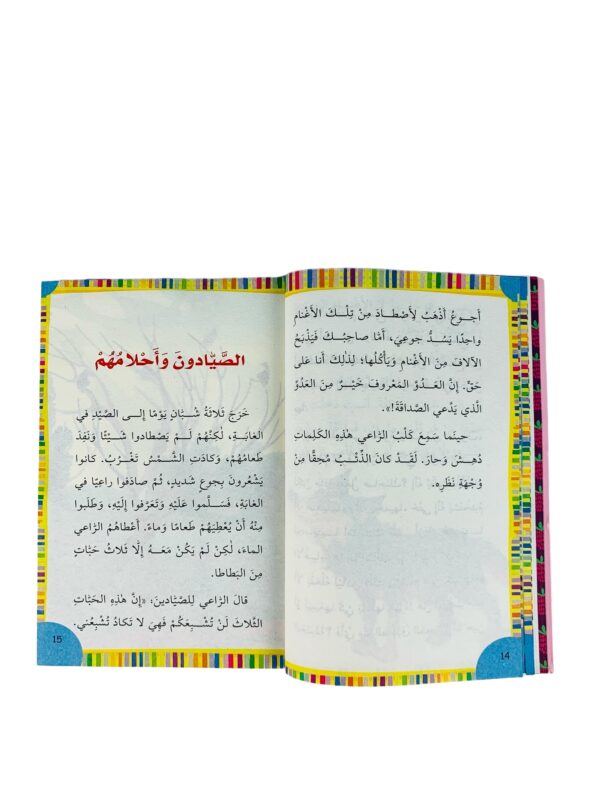 أَجوعُ أَذْهَبُ لِأَصْطادَ مِنْ تِلْكَ الأَغْنامِ
واحِدًا يَسُدُّ جوعِيَ، أَمَّا صاحِبُكَ فَيَذْبَحُ
الآلافَ مِنَ الأَغْنامِ وَيَأْكُلُها؛ لِذلِكَ أنا عَلى
حَقٍّ. إِنَّ العَدُوَّ المَعْروفَ خَيْرٌ مِنَ العَدُوِّ
الَّذي يَدَّعي الصَّداقَةَ!».
حينَما سَمِعَ كَلْبُ الرَّاعي هٰذِهِ الكَلِماتِ
دُهِشَ وَحارَ. لَقَدْ كانَ الذِّئْبُ مُحِقًّا مِنْ
وُجْهَةِ نَظَرِهِ.
14
الصَّيَّادونَ وَأَحْلامُهُمْ
خَرَجَ ثَلاثَةُ شُبَّانٍ يَوْمًا إِلى الصَّيْدِ في
الغابَةِ، لٰكِنَّهُمْ لَمْ يَصْطادوا شَيْئًا وَنَفَدَ
طَعامُهُمْ، وَكادَتِ الشَّمْسُ تَغْرُبُ. كانوا
يَشْعُرونَ بِجوعٍ شَديدٍ، ثُمَّ صادَفوا راعِيًا في
الغابَةِ، فَسَلَّموا عَلَيْهِ وَتَعَرَّفوا إِلَيْهِ، وَطَلَبوا
مِنْهُ أَنْ يُعْطِيَهُمْ طَعامًا وَماءً. أَعْطاهُمُ الرَّاعي
الماءَ، لٰكِنْ لَمْ يَكُنْ مَعَهُ إِلَّا ثَلاثُ حَبَّاتٍ
مِنَ البَطاطا.
قالَ الرَّاعي لِلصَّيَّادينَ: «إِنَّ هٰذِهِ الحَبَّاتِ
الثَّلاثَ لَنْ تُشْبِعَكُمْ فَهِيَ لا تَكادُ تُشْبِعُني.
15